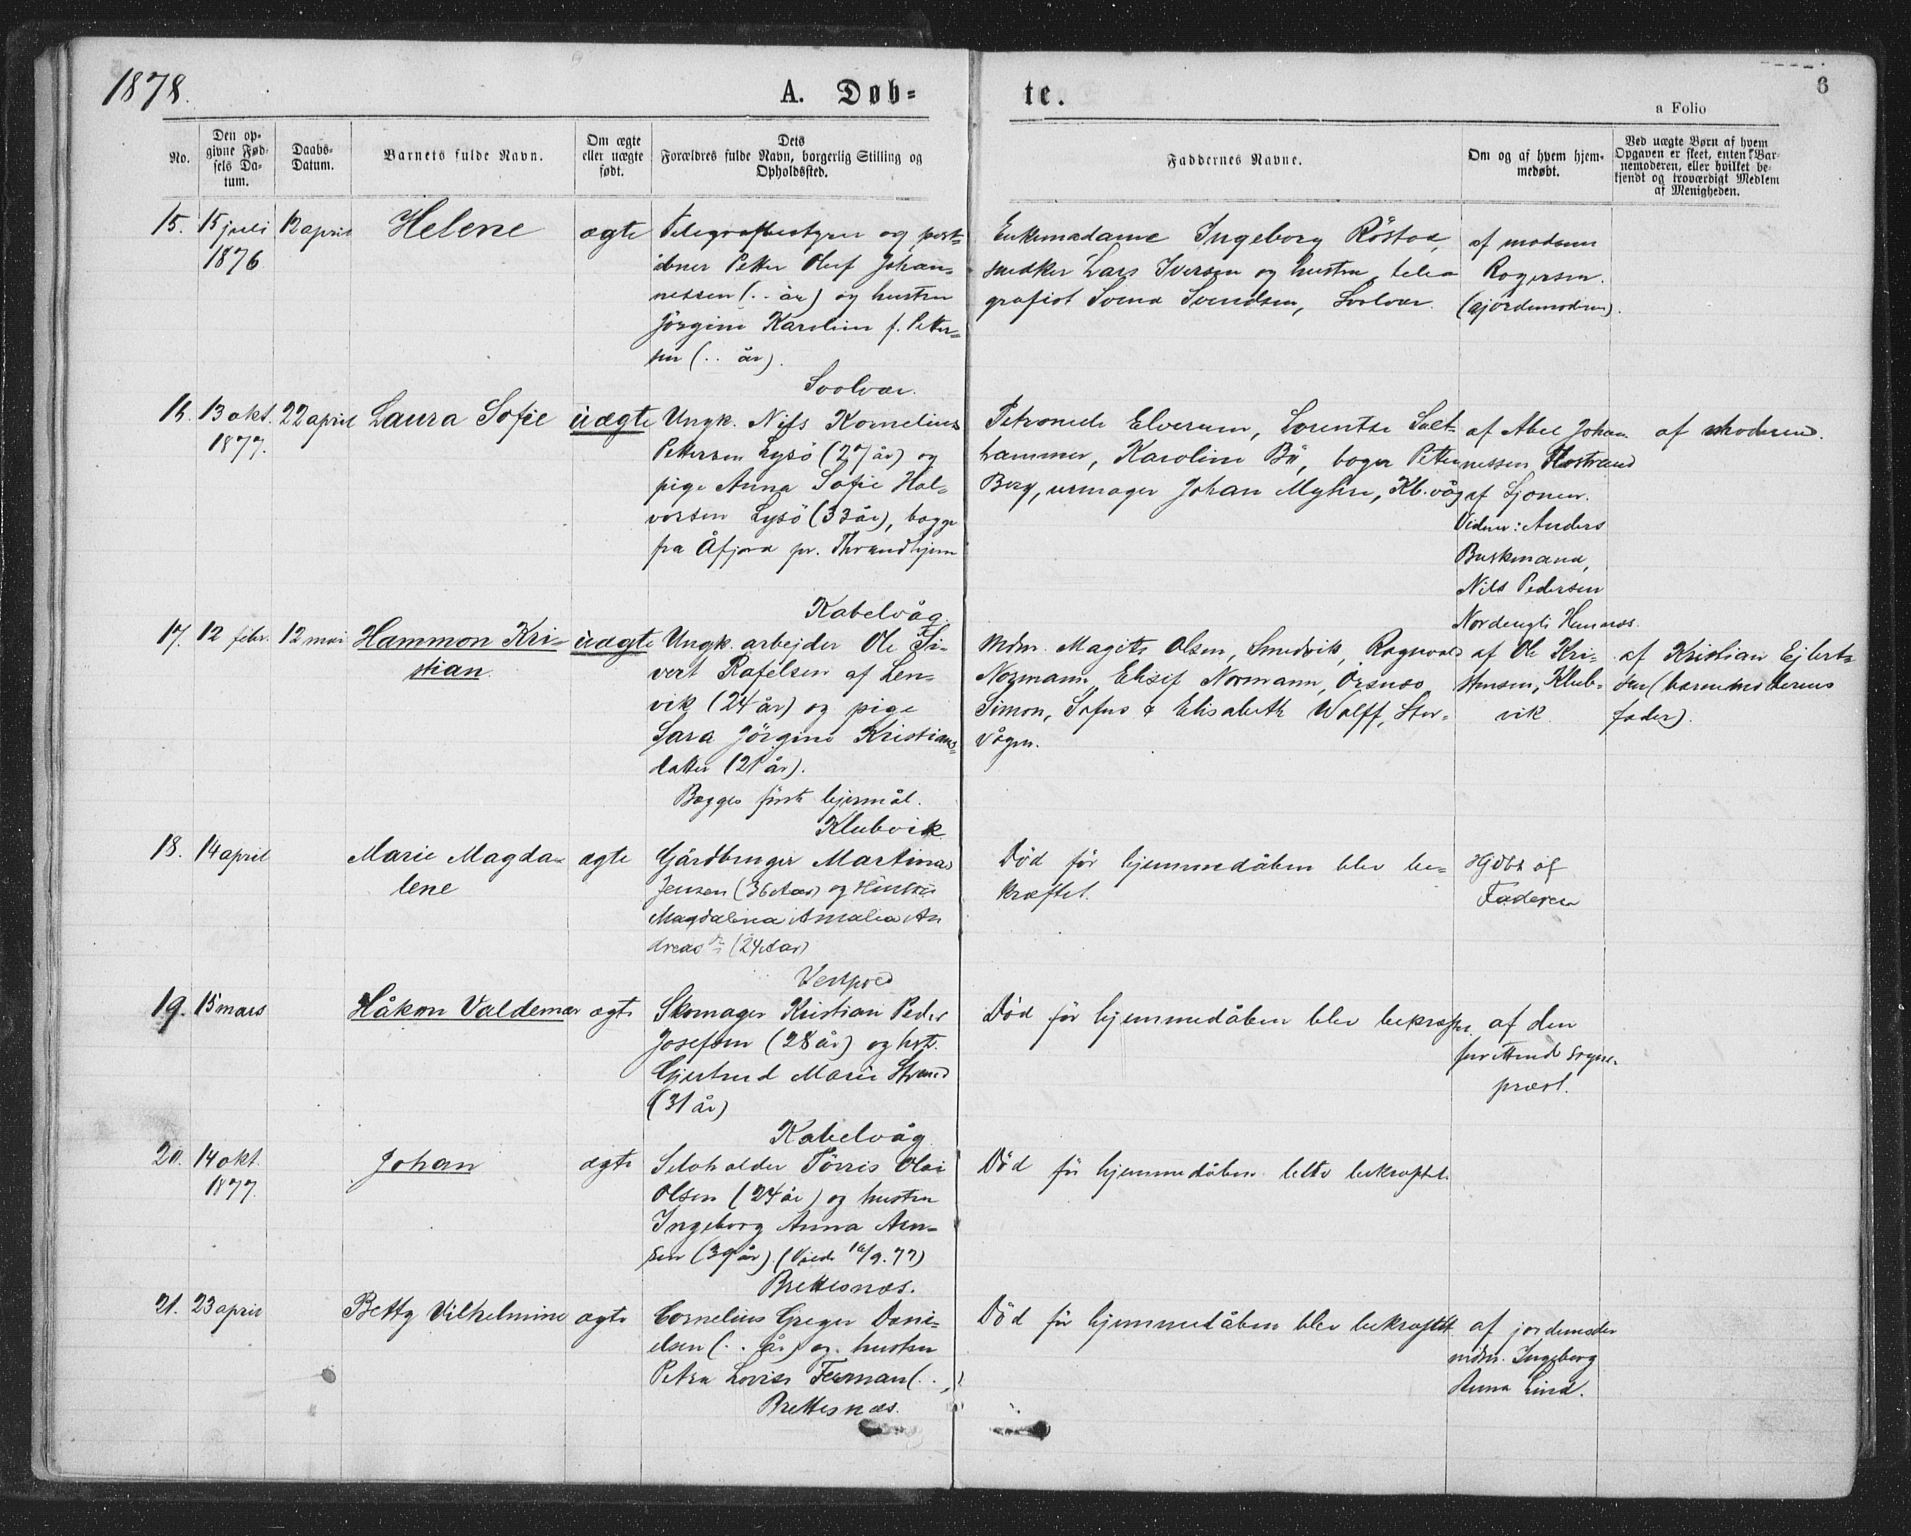 1878.
A. Døb=
te.
6
a Folio
No.
Den op-
givne Fød-
sels Da-
tum.
Daabs-
Datum.
Barnets fulde Navn.
Om ægte
eller uægte
født.
Dets
Forældres fulde Navn, borgerlig Stilling og
Opholdssted.
Faddernes Navne.
Om og af hvem hjem-
medøbt.
Ved uægte Børn af hvem
Opgaven er skeet, enten Bar-
nemoderen, eller hvilket be-
kjendt og troværdigt Medlem
af Menigheden.
15.
15 juli
1876
12 april
Helene
ægte
Telegrafbestyrer og post-
åbner Petter Oluf Johan-
nessen (.. år) og hustru
Jörgine Karoline f. Peter-
sen (.. år).
Svolvær.
Enkemadame Ingeborg Röstad,
snedker Lars Iversen og hustru, tele-
grafist Svend Svendsen, Svolvær.
af madame
Rogersen.
(gjordemodren).
16.
13 okt.
1877.
22 april
Laura Sofie
uægte
Ungk. Nils Kornelius
Petersen Lysö (27 år) og
pige Anna Sofie Hal-
vorsen Lysö (33 år), begge
fra Åfjord pr. Throndhjem
Kabelvåg
Petronede Elverum, Lorentse Salt-
hammer, Karoline Bö, bager Peter
Berg, urmager Johan Myhre, Kb.våg
af Abel Johan-
nessen Flostrand
af Sjonen.
Vidner: Anders
Buskmand,
Nils Pedersen
af Moderen.
17.
12 febr.
12 mai
Hammon Kri-
stian
uægte
Ungk. arbejder Ole Si-
vert Rafelsen af Len-
vik (24 år) og pige
Sara Jörgine Kristians-
datter (21 år).
Begges förste lejermål.
Klubvik
Mdm. Magits Olsen, Smedvik, Ragnvald
Normann, Elisif Normann, Örsnes
Simon, Sofus & Elisabeth Wolff, Stor-
vågen.
af Ole Kri-
stensen, Klub-
vik
af Kristian Ejlert-
sen (barnemoderens
fader).
18.
14 april
Marie Magda-
lene
ægte
Gårdbruger Martinus
Jensen (36 Aar) og Hustru
Magdalena Amalia An
dreas (24 Aar)
Vestpold
Död för hjemmedåben blev be-
kræftet.
Hjdbt af
Faderen
19.
15 mars
Håkon Valdemar
ægte
Skomager Kristian Peder
Josefsen (28 år) og hst.
Gjertrud Marie Strand
(31 år)
Kabelvåg
Död för hjemmedåben blev bekræftet.
af den
sogne-
præst.
20.
14 okt.
1877.
Johan
ægte
Selvholder Törris Olai
Olsen (24 år) og hustru
Ingeborg Anna Arn-
sen (39 år) (Viede 16/9.77)
Brettesnæs.
Död för hjemmedåben blev bekræftet.
21.
23 april
Betty Vilhelmine
ægte
Cornelius Greger Dani-
elsen (.. år) og hustru
Petra Lovise (..
Brettesnæs.
Död för hjemmedåben blev bekræftet
af jordemoder
mdm. Ingeborg
Anna Lind.